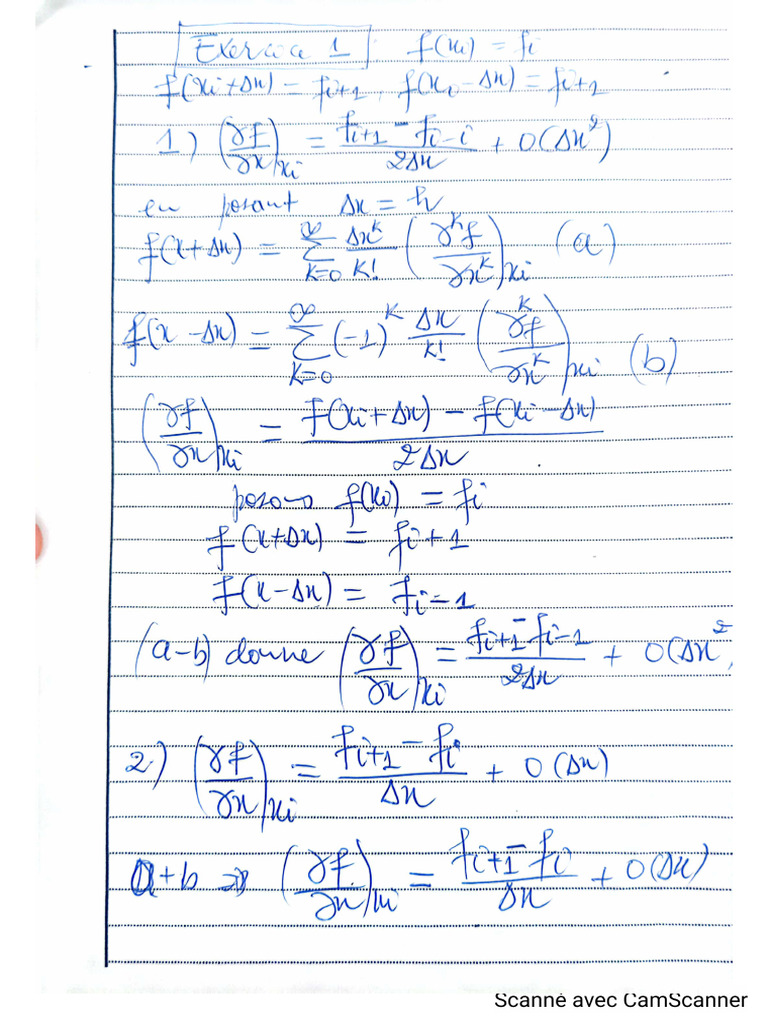 Exercice 1 f(xi) = fi
f(xi+Δx) = fi+1, f(xi-Δx) = fi+1
1) (∂f/∂x)xi = (fi+1 - fi-i)/2Δx + O(Δx²)
en posant Δx = h
f(x+Δx) = Σ_{k=0}^{∞} Δx^k/k! (∂^k f/∂x^k)xi (a)
f(x-Δx) = Σ_{k=0}^{∞} (-1)^k Δx/k! (∂^k f/∂x^k)xi (b)
(∂f/∂x)xi = (f(xi+Δx) - f(xi-Δx))/2Δx.
posons f(xi) = fi
f(x+Δx) = fi+1
f(x-Δx) = fi-1
(a-b) donne (∂f/∂x)xi = (fi+1 - fi-1)/2Δx + O(Δx²,
2) (∂f/∂x)xi = (fi+1 - fi)/Δx + O(Δx)
a+b ⇒ (∂f/∂x)xi = (fi+1 - fi)/Δx + O(Δx)
Scanné avec CamScanner